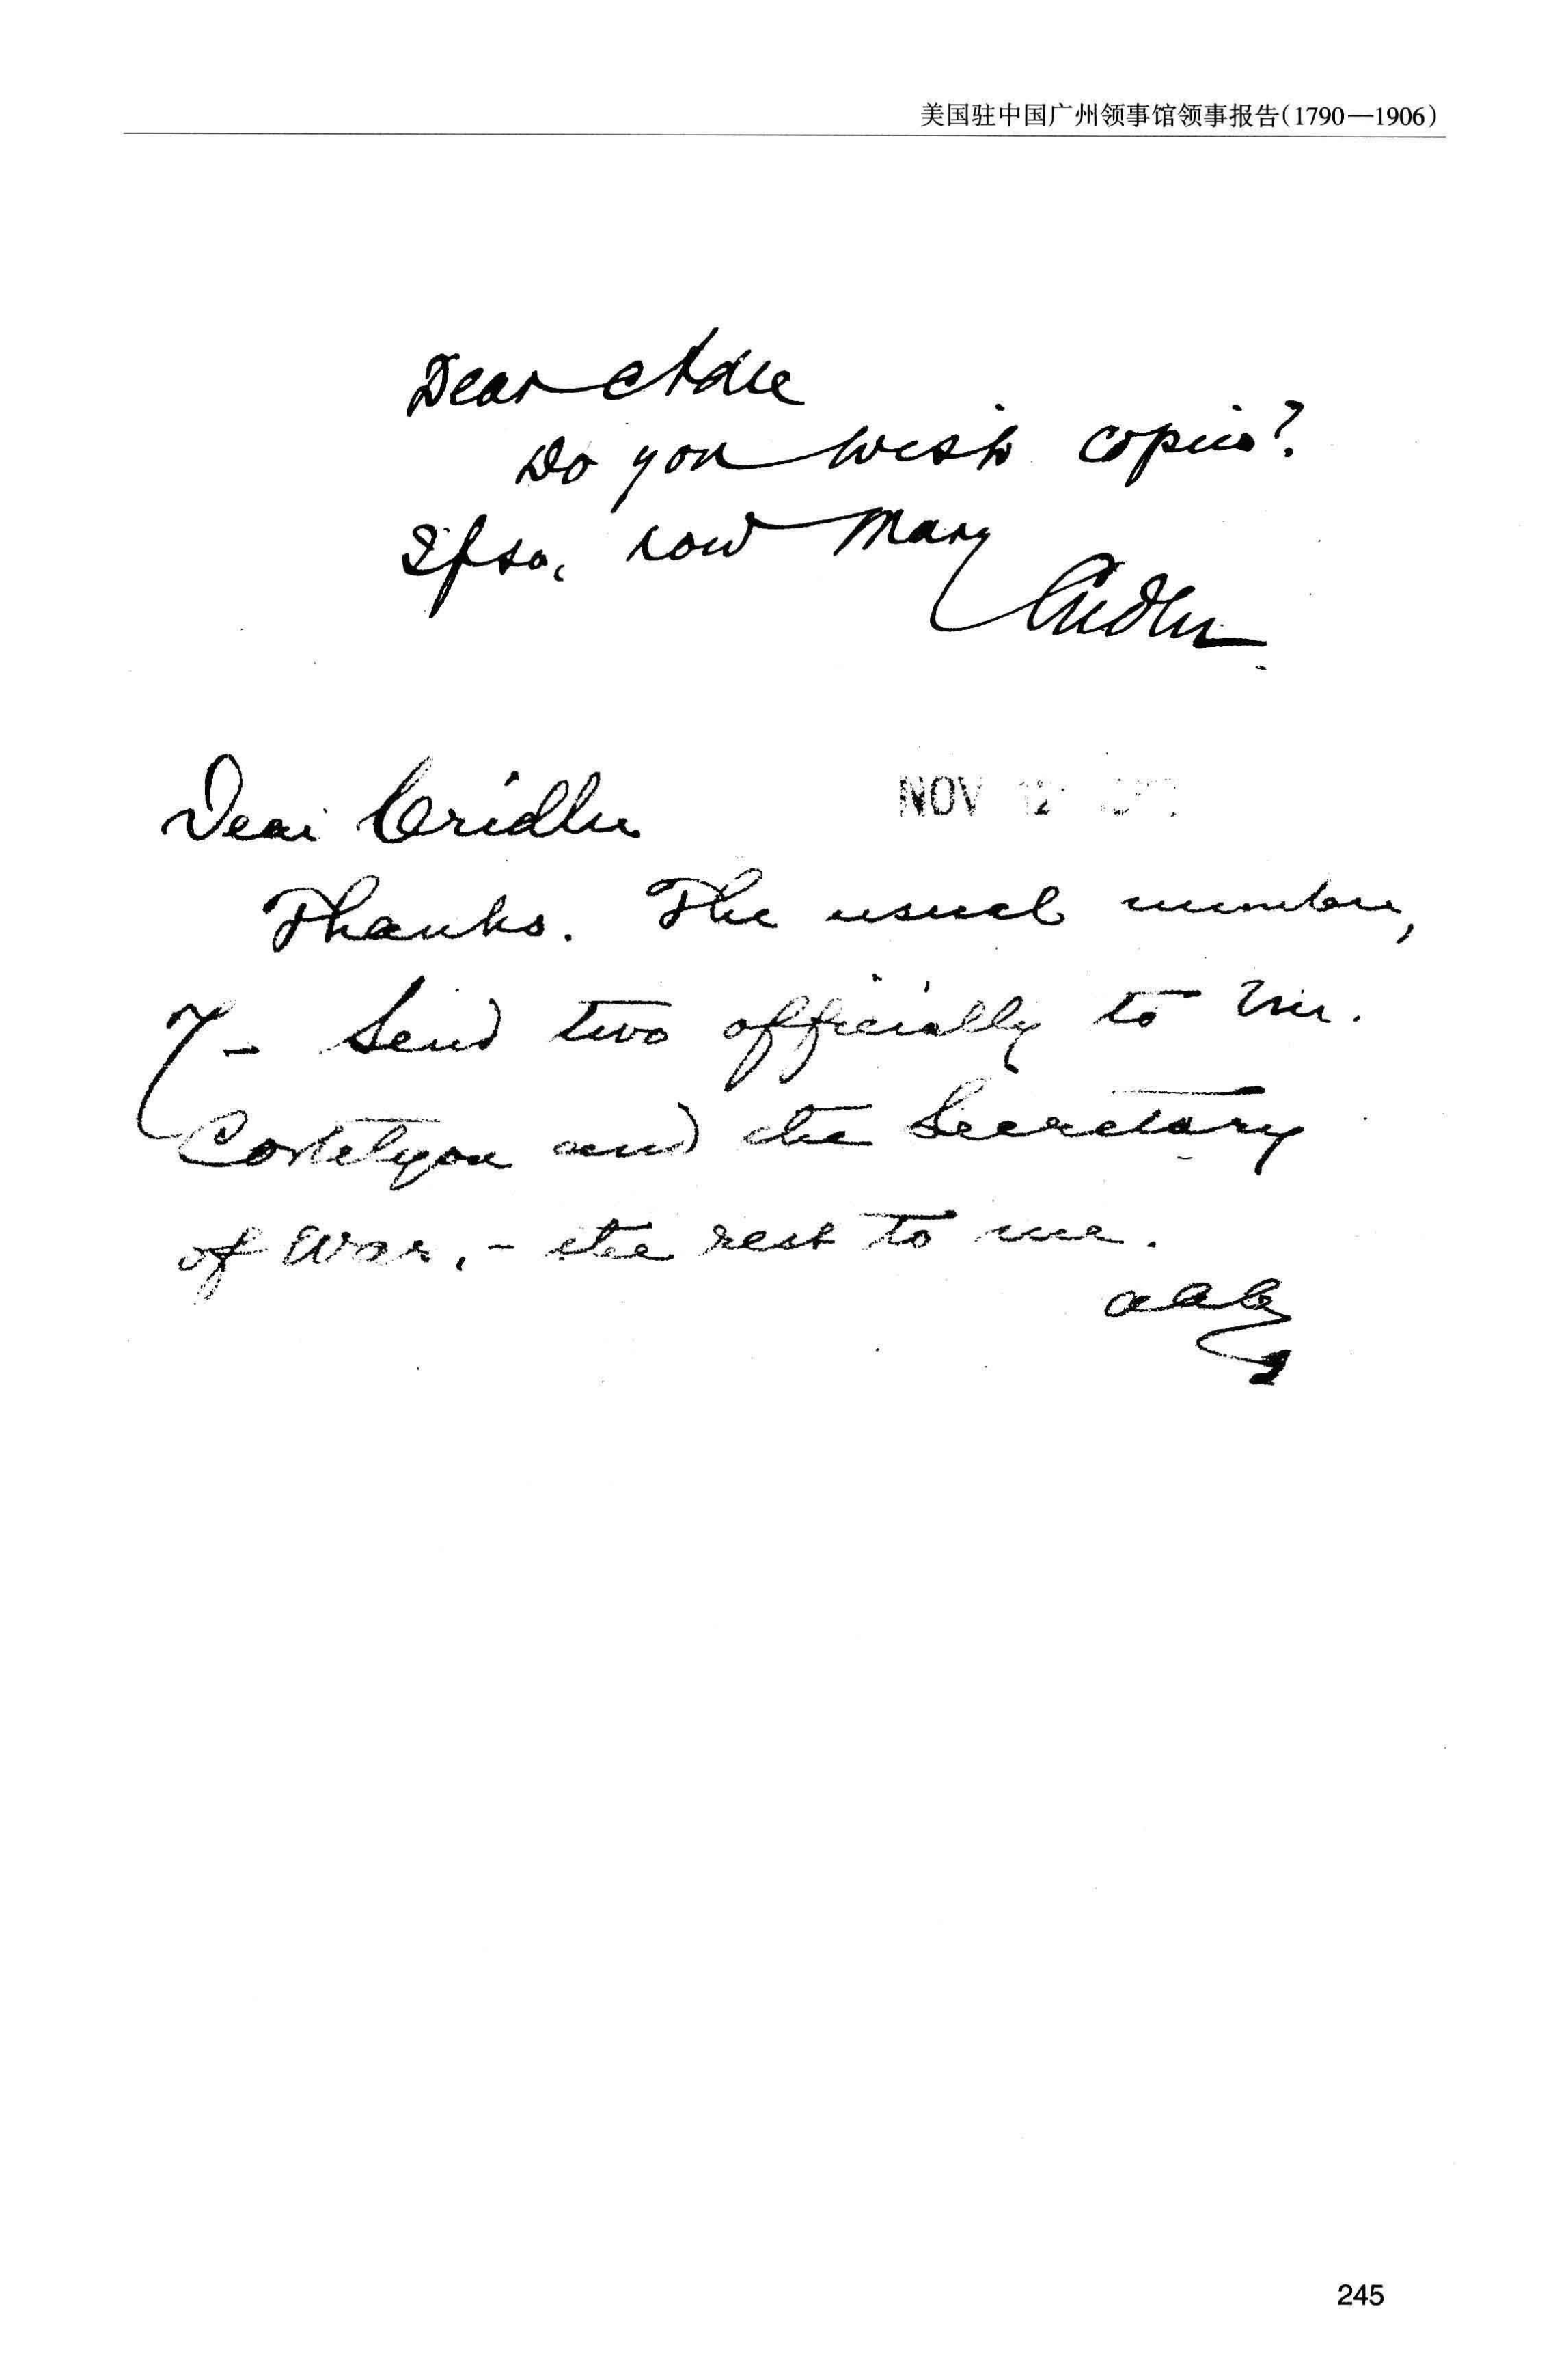 美国驻中国广州领事馆领事报告(1790—1906)
Dear Adee
Do you wish copies?
If so, how many
Cridler
NOV 12
Dear Cridler
Thanks. The usual number,
7 – Send two officially to Mr.
Cortelyou and the Secretary
of War, – the rest to me.
AAA
245